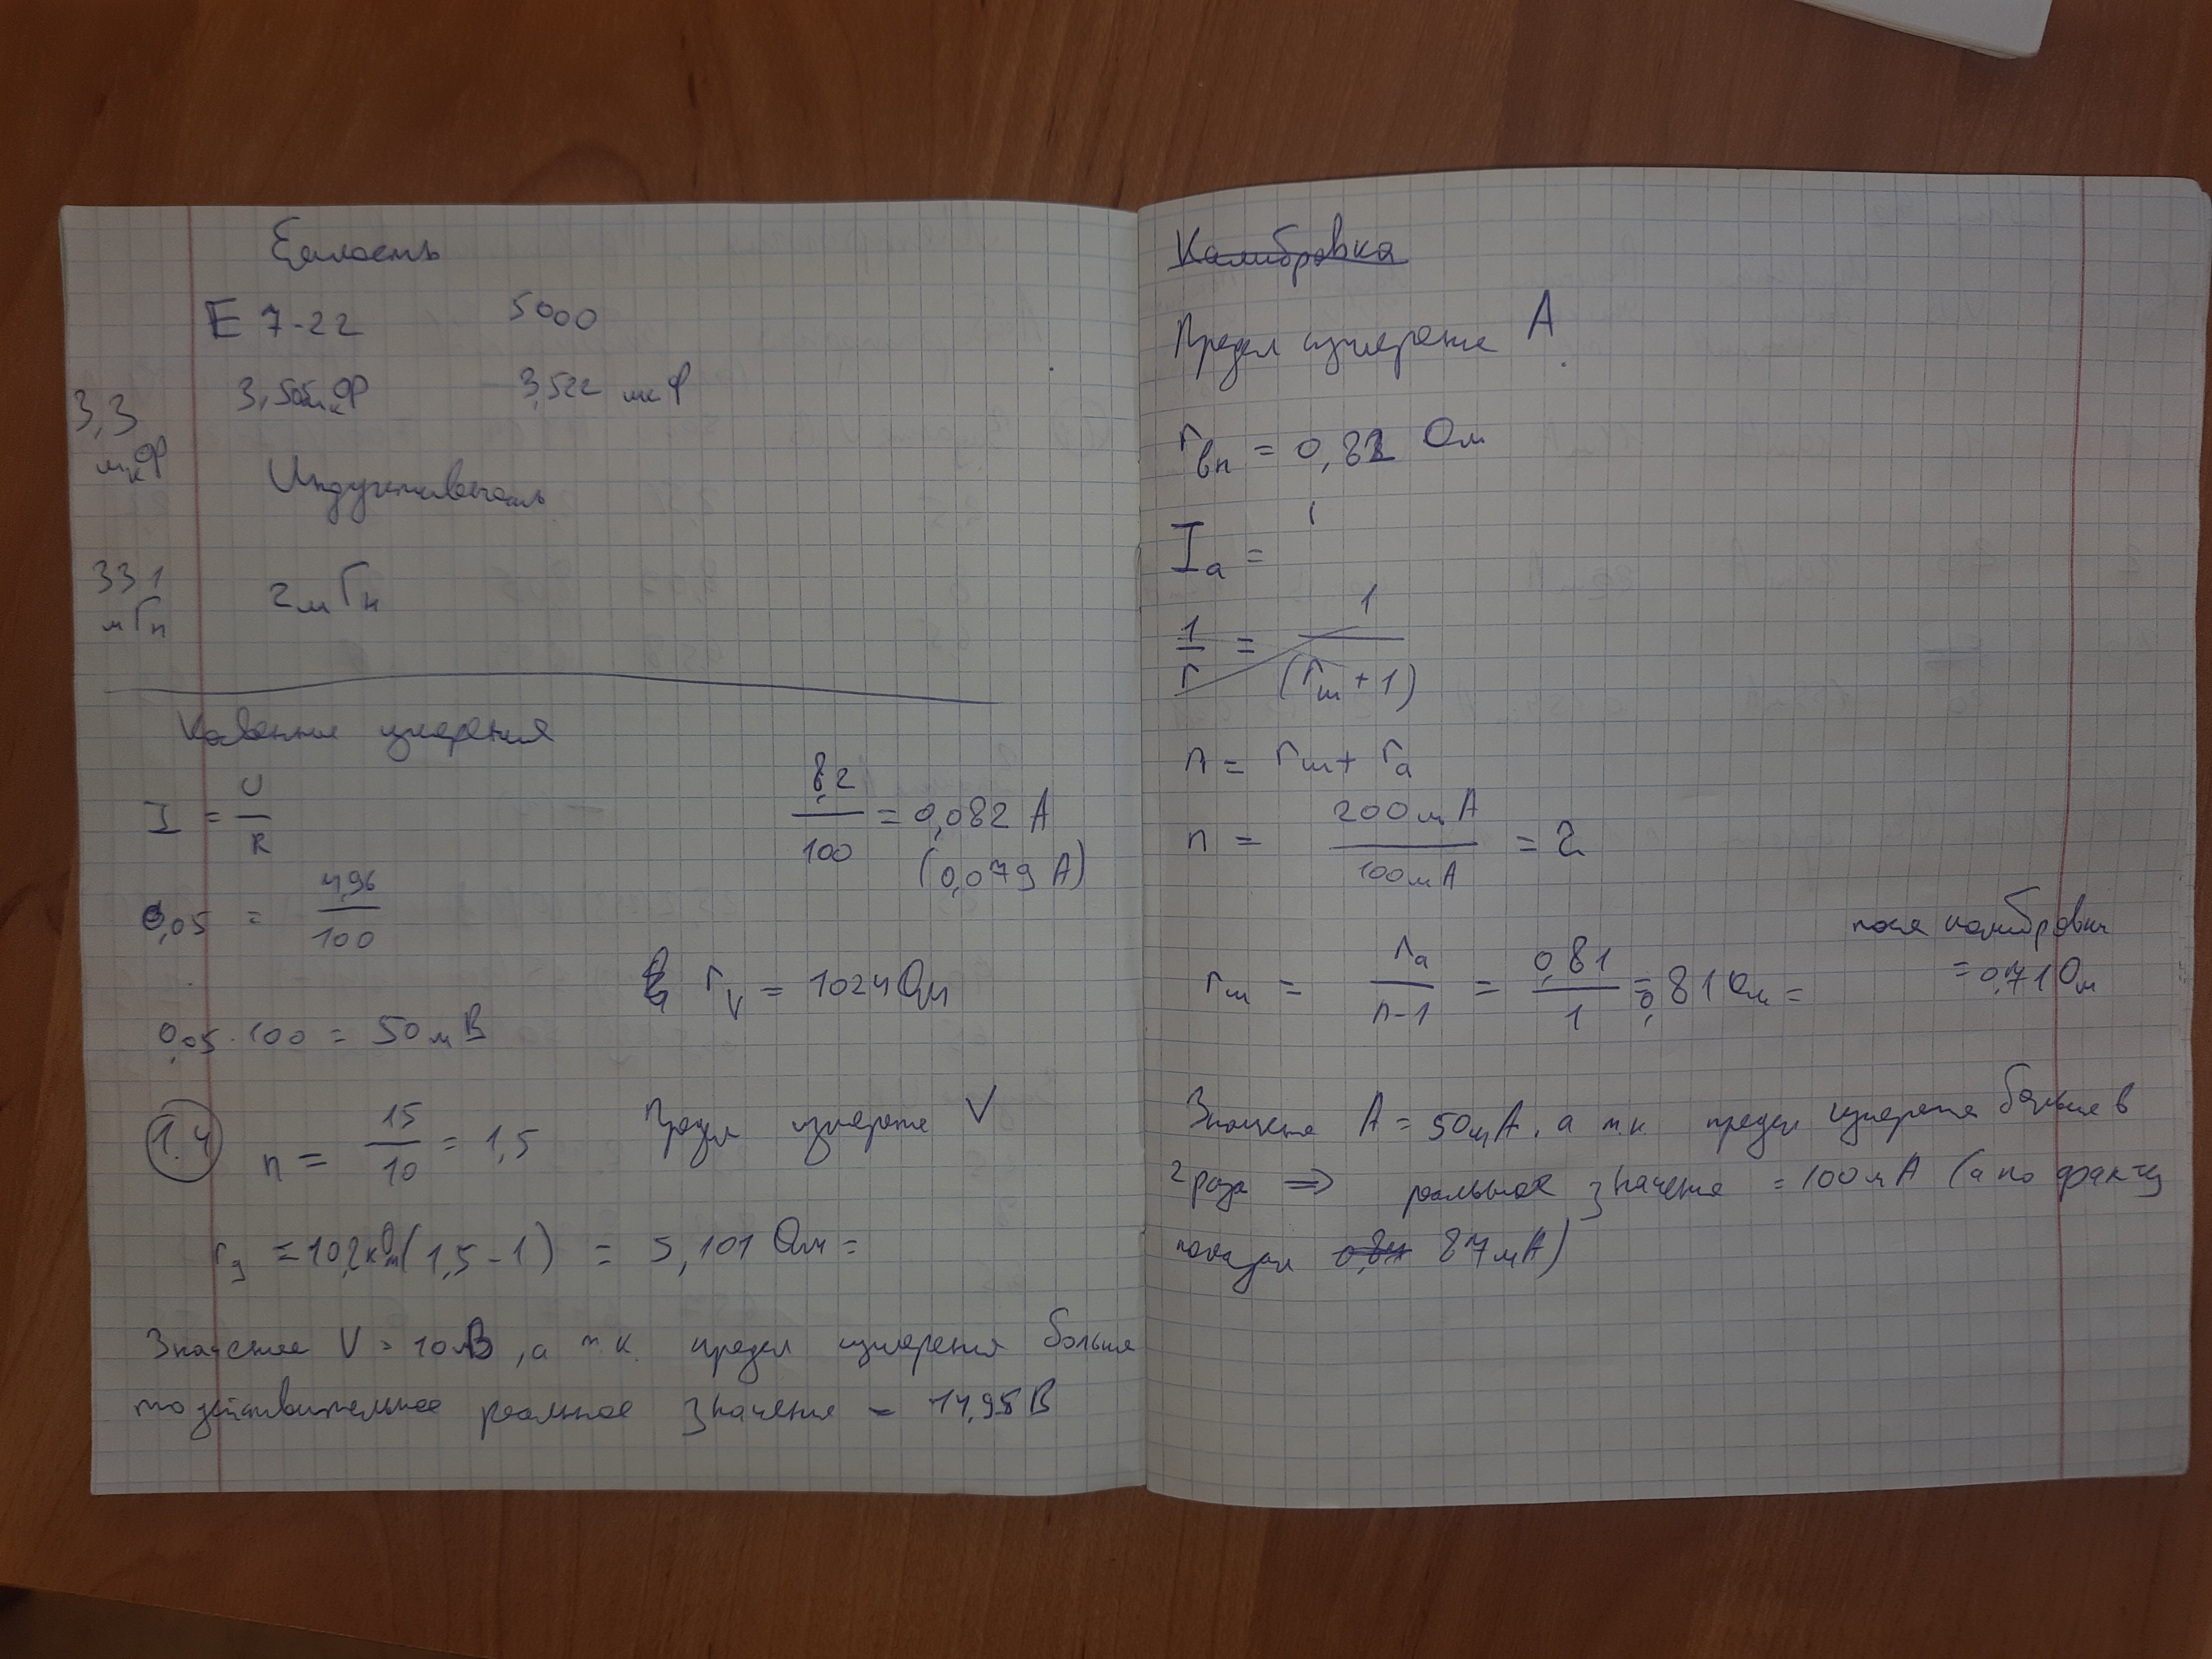 Емкость
E 7-22 5000
3,3 мкФ 3,505мкФ 3,522 мкФ
Индуктивность
331 мГн 2мГн
Косвенные измерения
I = U/R
8,2/100 = 0,082 A
(0,079 A)
0,05 = 4,96/100
r_V = 1024 Ом
0,05 · 100 = 50 мВ
1.4 n = 15/10 = 1,5 Предел измерение V
r_g = 10,2кОм(1,5-1) = 5,101 Ом =
Значение V = 10 В, а т.к. предел измерения больше
то действительное реальное значение = 14,95 В
Калибровка
Предел измерение A
r_вн = 0,82 Ом
I_a =
1/r = 1/(r_ш + 1)
n = r_ш + r_a
n = 200мА/100мА = 2
после калибровки
r_ш = r_a/n-1 = 0,81/1 = 0,81 Ом = = 0,71 Ом
Значение A = 50мА, а т.к. предел измерения больше в
2 раза ⇒ реальное значение = 100мА (а по факту
показал 87мА)